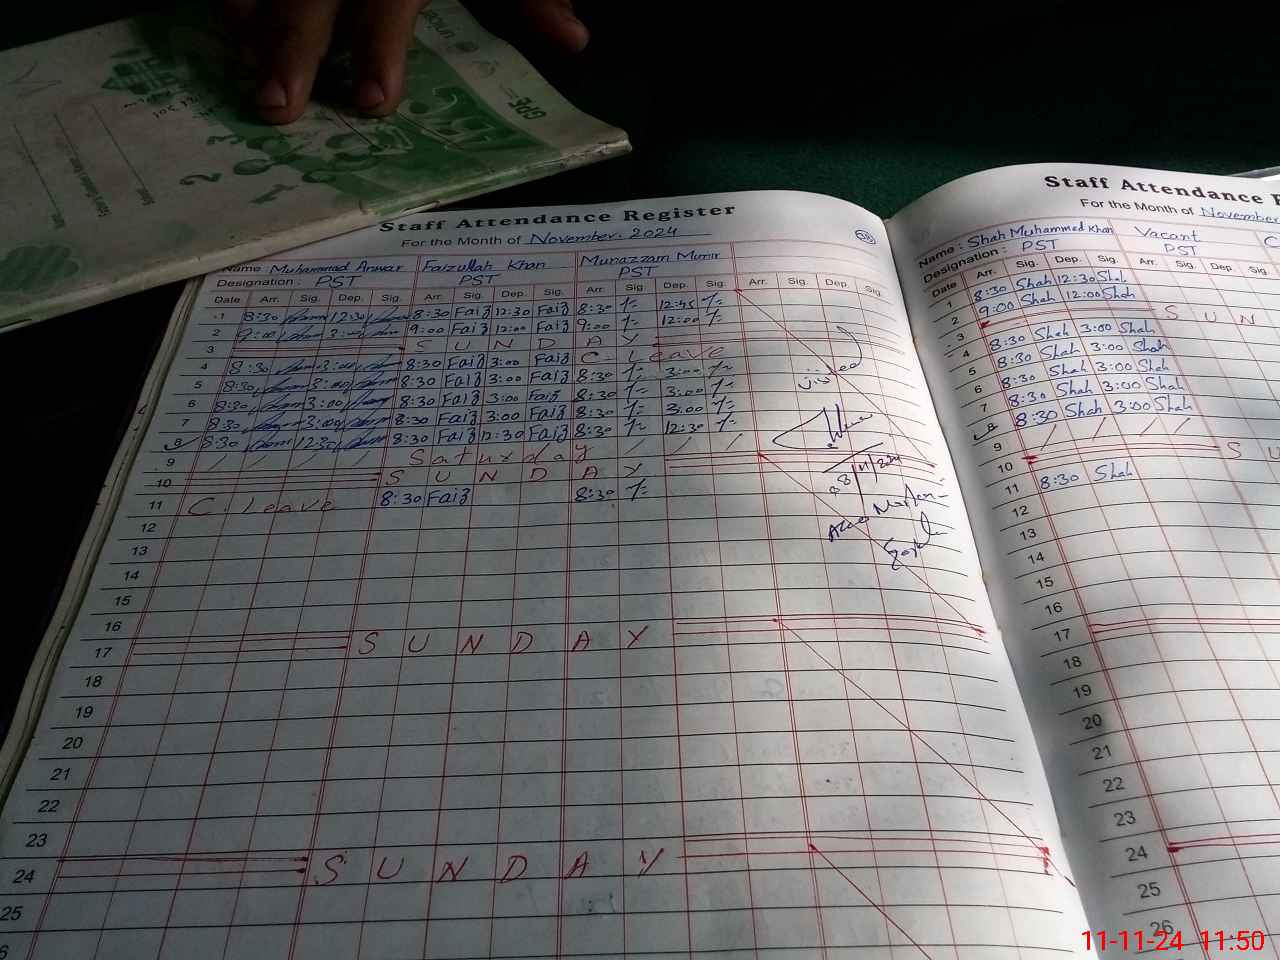 unicef
GPE
Staff Attendance Register
For the Month of November. 2024
38
Name Muhammad Anwar Faizullah Khan Munazzam Munir
Designation : PST PST PST
Date Arr. Sig. Dep. Sig. Arr. Sig. Dep. Sig. Arr. Sig. Dep. Sig. Arr. Sig. Dep. Sig.
1 8:30 12:30 8:30 Faiz 12:30 Faiz 8:30 12:45
2 9:00 3:00 9:00 Faiz 12:00 Faiz 9:00 12:00
3 S U N D A Y
4 8:30 3:00 8:30 Faiz 3:00 Faiz C. Leave
5 8:30 3:00 8:30 Faiz 3:00 Faiz 8:30 3:00
6 8:30 3:00 8:30 Faiz 3:00 Faiz 8:30 3:00
7 8:30 3:00 8:30 Faiz 3:00 Faiz 8:30 3:00
8 8:30 12:30 8:30 Faiz 12:30 Faiz 8:30 12:30
9 Saturday
10 S U N D A Y
11 C. Leave 8:30 Faiz 8:30
12
13
14
15
16
17 S U N D A Y
18
19
20
21
22
23
24 S U N D A Y
25
Staff Attendance
For the Month of November
Name : Shah Muhammed Khan Vacant
Designation : PST PST
Date Arr. Sig. Dep. Sig. Arr. Sig. Dep. Sig.
1 8:30 Shah 12:30 Shah
2 9:00 Shah 12:00 Shah
3 S U N
4 8:30 Shah 3:00 Shah
5 8:30 Shah 3:00 Shah
6 8:30 Shah 3:00 Shah
7 8:30 Shah 3:00 Shah
8 8:30 Shah 3:00 Shah
9
10 S U
11 8:30 Shah
12
13
14
15
16
17
18
19
20
21
22
23
24
25
26
11-11-24 11:50